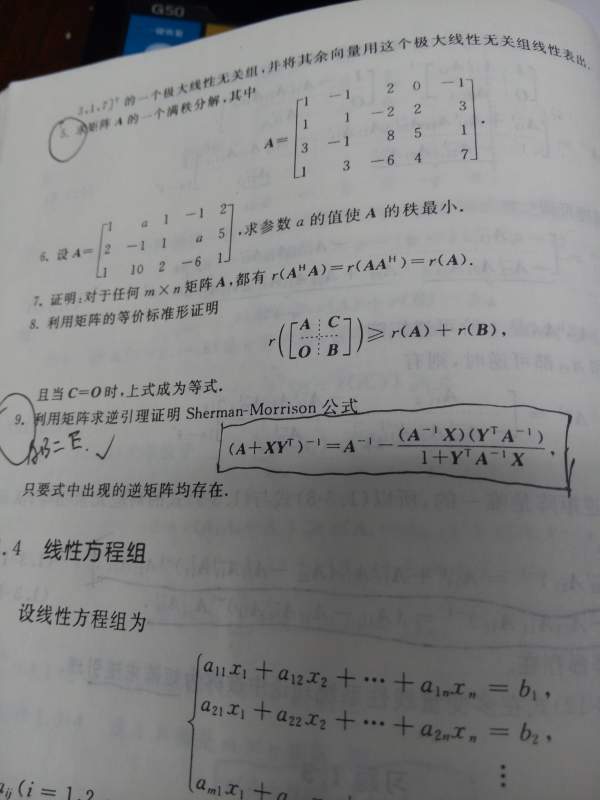 G50
3,1,7]ᵀ 的一个极大线性无关组,并将其余向量用这个极大线性无关组线性表出.
5. 求矩阵 A 的一个满秩分解,其中
A=[1 -1 2 0 -1
1 1 -2 2 3
3 -1 8 5 1
1 3 -6 4 7].
6. 设 A=[1 a 1 -1 2
2 -1 1 a 5
1 10 2 -6 1],求参数 a 的值使 A 的秩最小.
7. 证明:对于任何 m×n 矩阵 A,都有 r(AᴴA)=r(AAᴴ)=r(A).
8. 利用矩阵的等价标准形证明
r([A C
O B])≥r(A)+r(B),
且当 C=O 时,上式成为等式.
9. 利用矩阵求逆引理证明 Sherman-Morrison 公式
AB=E. ✓
(A+XYᵀ)⁻¹=A⁻¹-(A⁻¹X)(YᵀA⁻¹)/1+YᵀA⁻¹X,
只要式中出现的逆矩阵均存在.
.4 线性方程组
设线性方程组为
a₁₁x₁+a₁₂x₂+⋯+a₁ₙxₙ=b₁,
a₂₁x₁+a₂₂x₂+⋯+a₂ₙxₙ=b₂,
⋮
aₘ₁x₁+
aᵢⱼ(i=1,2